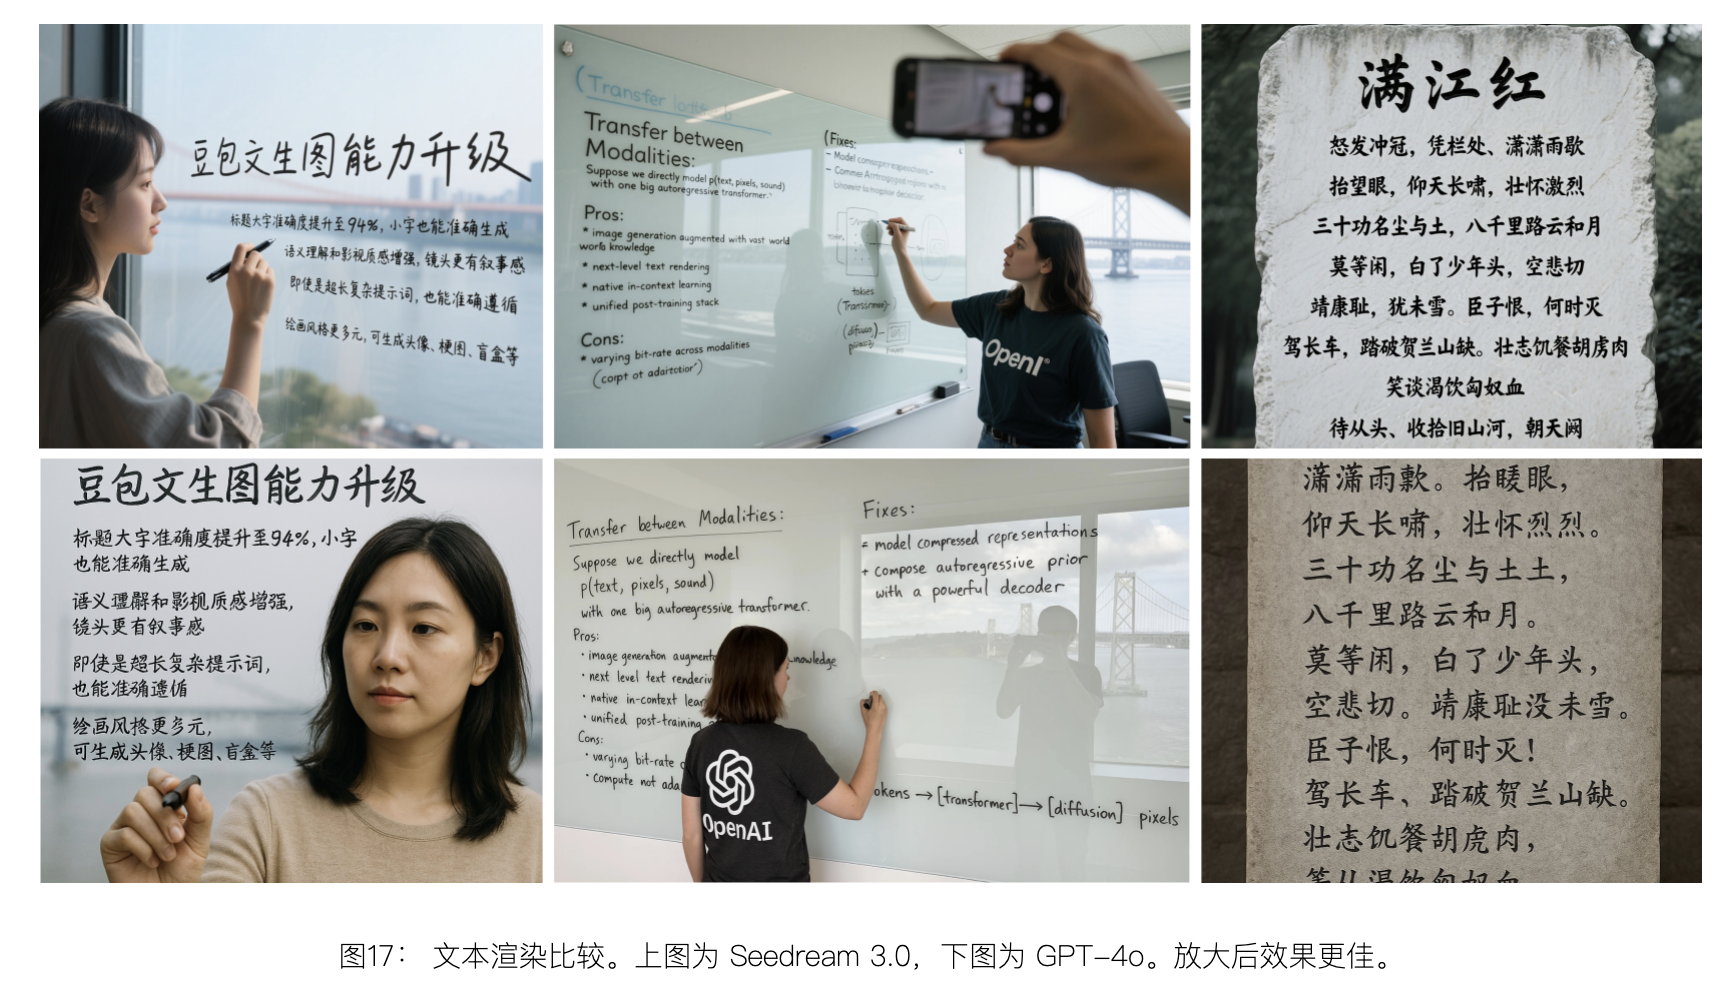 豆包文生图能力升级
标题大字准确度提升至94%，小字也能准确生成
语义理解和影视质感增强，镜头更有叙事感
即使是超长复杂提示词，也能准确遵循
绘画风格更多元，可生成头像、梗图、盲盒等
(Transfer
Transfer between
Modalities:
Suppose we directly model p(text, pixels, sound)
with one big autoregressive transformer.
Pros:
* image generation augmented with vast world
world knowledge
* next-level text rendering
* native in-context learning
* unified post-training stack
Cons:
* varying bit-rate across modalities
(Fixes:
- Model
tokies
OpenI
满江红
怒发冲冠，凭栏处、潇潇雨歇
抬望眼，仰天长啸，壮怀激烈
三十功名尘与土，八千里路云和月
莫等闲，白了少年头，空悲切
靖康耻，犹未雪。臣子恨，何时灭
驾长车，踏破贺兰山缺。壮志饥餐胡虏肉
笑谈渴饮匈奴血
待从头、收拾旧山河，朝天阙
豆包文生图能力升级
标题大字准确度提升至94%，小字
也能准确生成
语义理解和影视质感增强，
镜头更有叙事感
即使是超长复杂提示词，
也能准确遵循
绘画风格更多元，
可生成头像、梗图、盲盒等
Transfer between Modalities:
Suppose we directly model
p(text, pixels, sound)
with one big autoregressive transformer.
Pros:
• image generation augmente nowledge
• next level text renderin
• native in-context lear
• unified post-training
Cons:
• varying bit-rate
• compute not ada
Fixes:
= model compressed representations
+ compose autoregressive prior
with a powerful decoder
okens → [transformer] → [diffusion] pixels
OpenAI
潇潇雨歎。抬眼，
仰天长啸，壮怀烈烈。
三十功名尘与土土，
八千里路云和月。
莫等闲，白了少年头，
空悲切。靖康耻没未雪。
臣子恨，何时灭！
驾长车、踏破贺兰山缺。
壮志饥餐胡虎肉，
图17： 文本渲染比较。上图为 Seedream 3.0，下图为 GPT-4o。放大后效果更佳。